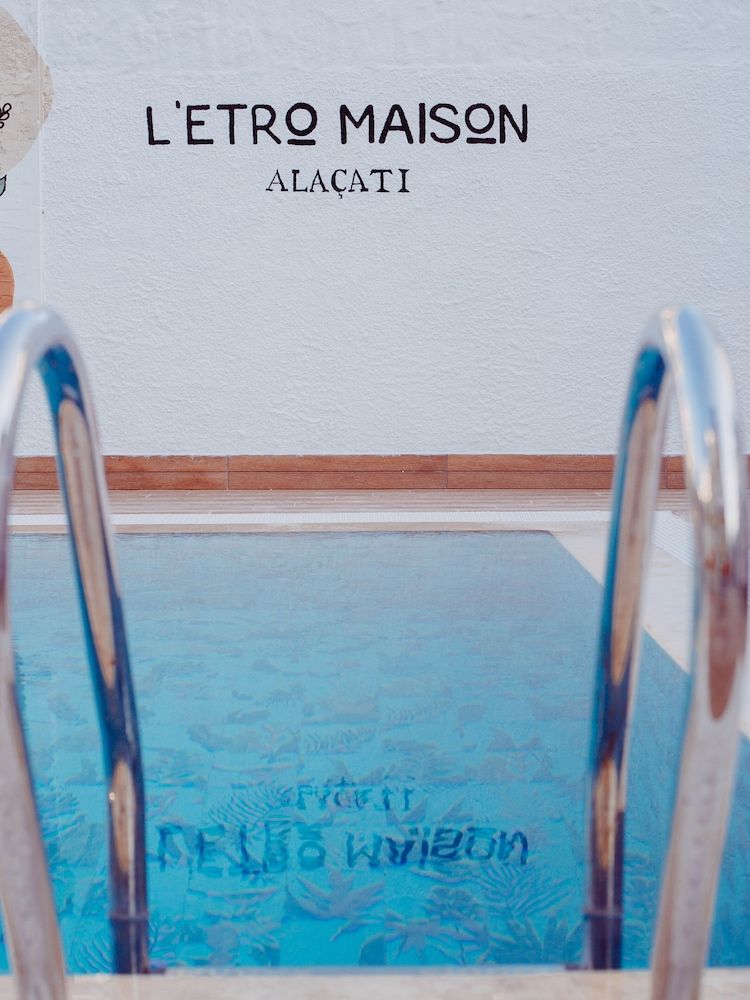 L'ETRO MAISON
ALAÇATI